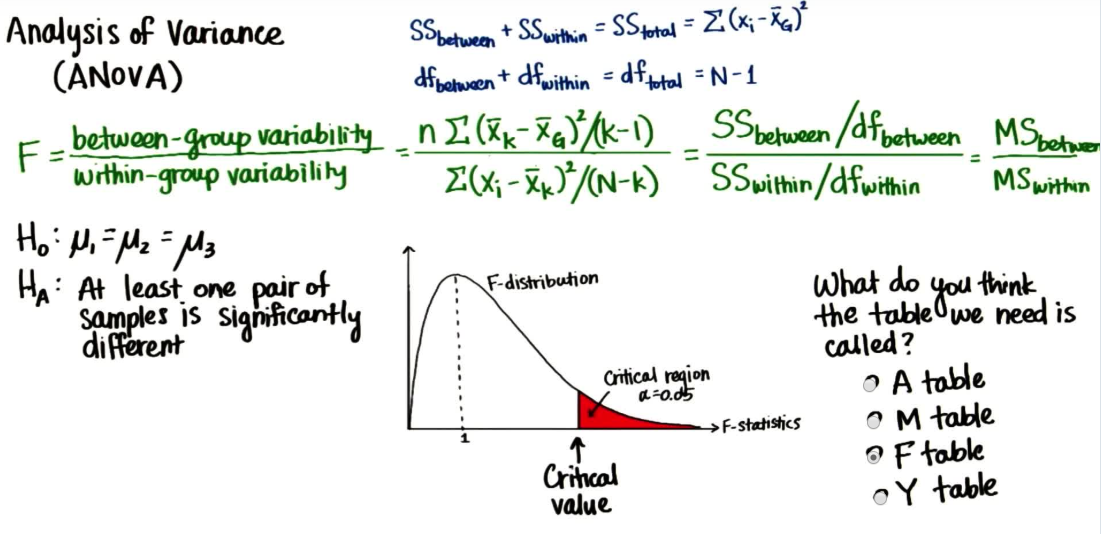 Analysis of Variance
(ANOVA)
SS_between + SS_within = SS_total = Σ(x_i - x̄_G)²
df_between + df_within = df_total = N-1
F = between-group variability / within-group variability = n Σ(x̄_k - x̄_G)²/(k-1) / Σ(x_i - x̄_k)²/(N-k) = SS_between/df_between / SS_within/df_within = MS_between / MS_within
H_0: μ_1 = μ_2 = μ_3
H_A: At least one pair of
samples is significantly
different
F-distribution
Critical region
α=0.05
F-statistics
1
Critical
value
What do you think
the table we need is
called?
A table
M table
F table
Y table